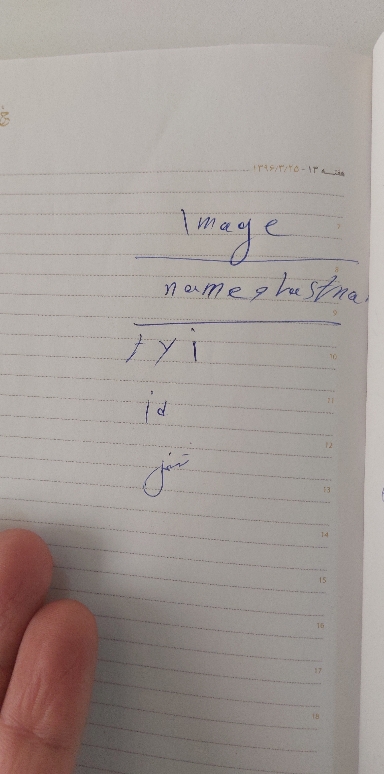 هفته ۱۳-۱۳۹۶/۳/۲۵
Image
7
8
name & lastna
9
fyi
10
11
id
12
13
14
15
16
17
18